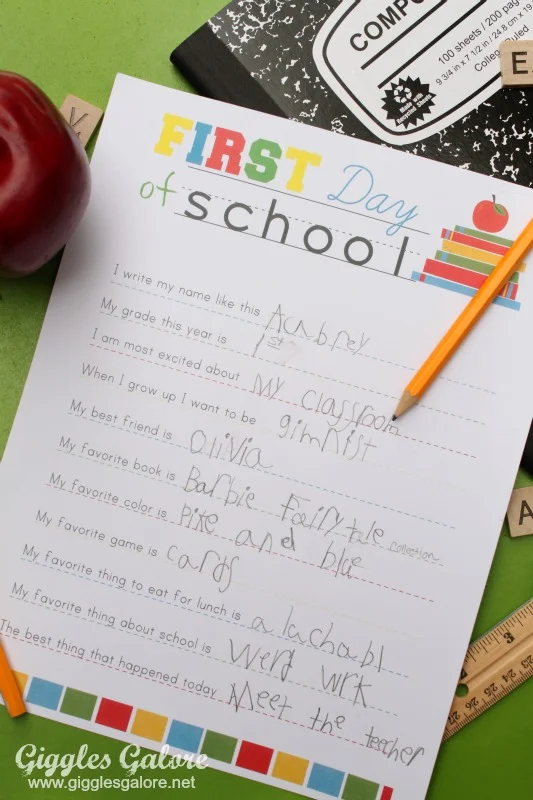 COMPO
100 sheets / 200 pag
9 3/4 in x 7 1/2 in / 24.8 cm x 19.
College Ruled
Made with
Recycled Sheets
E
K
FIRST Day
of school
I write my name like this Acubrey
My grade this year is 1st
I am most excited about My classroom
When I grow up I want to be gimnist
My best friend is Olivia
My favorite book is Barbie Fairytale collection
My favorite color is Pike and blue
My favorite game is cards
My favorite thing to eat for lunch is a lachabl
My favorite thing about school is werd wrk
The best thing that happened today Meet the teacher
A
Giggles Galore
www.gigglesgalore.net